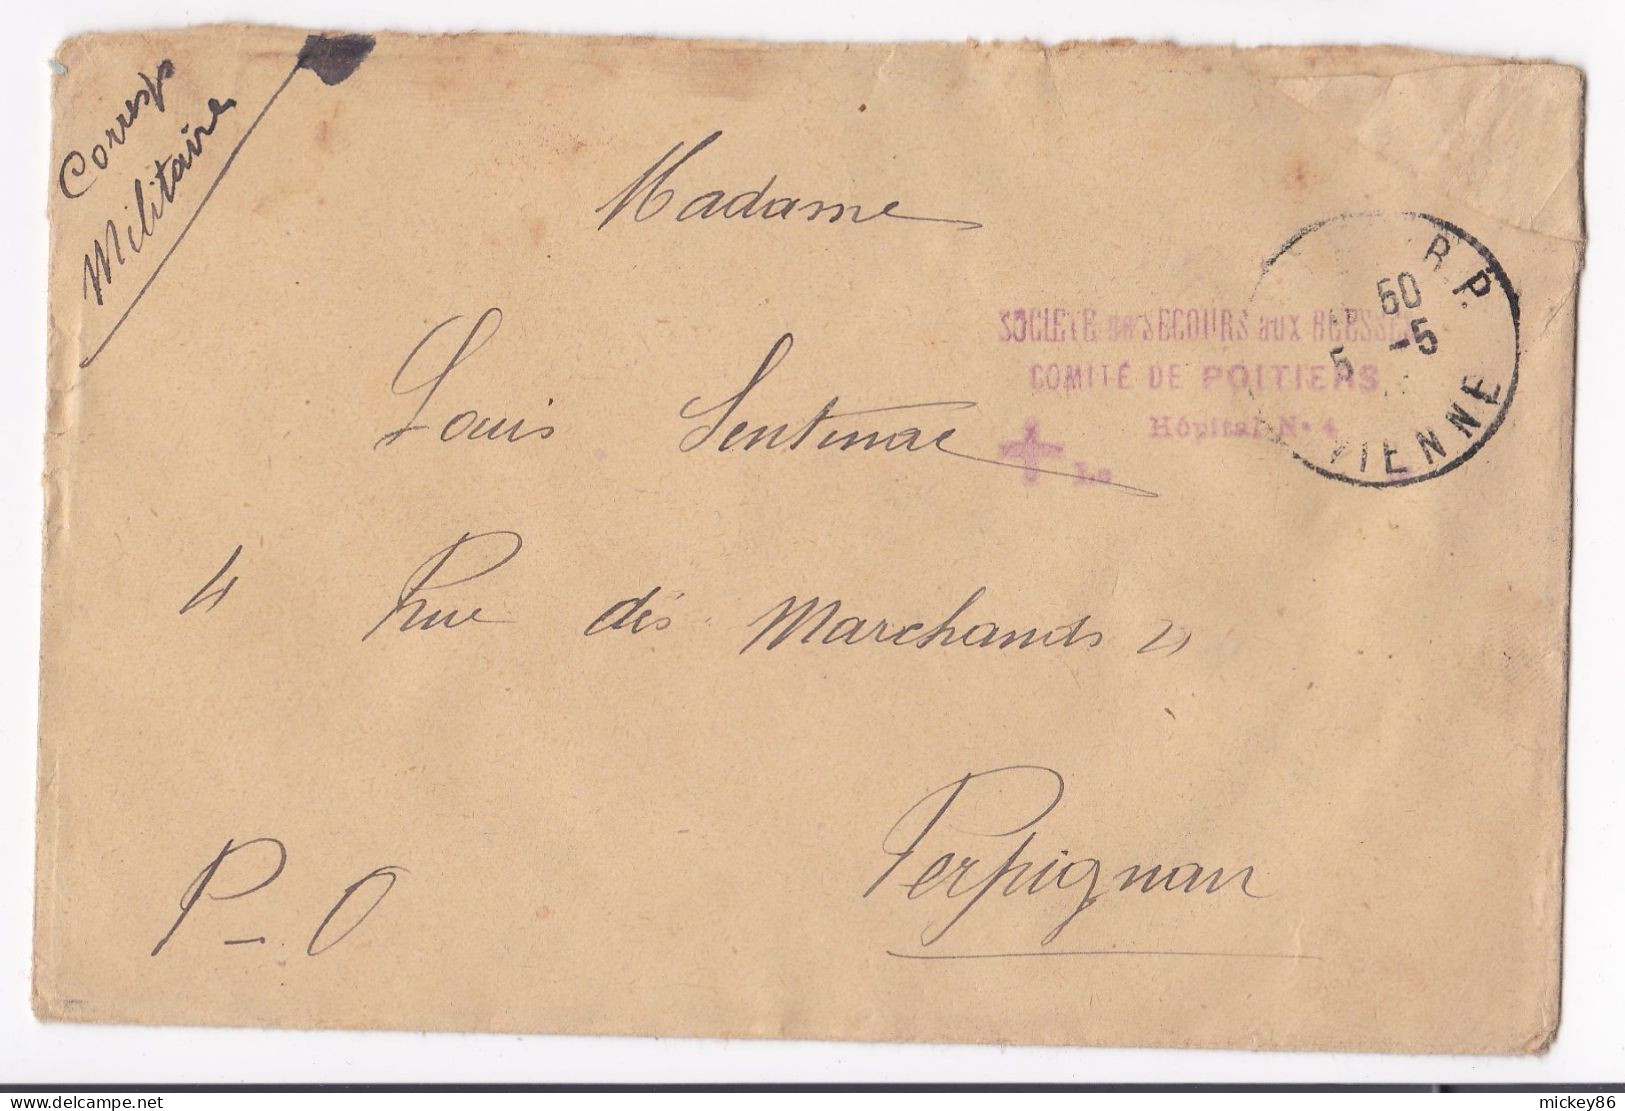 Corresp
Militaire
Madame
SOCIÉTÉ de SECOURS aux BLESSÉS
COMITÉ DE POITIERS
Hôpital N° 4
Le
R.P.
50
5 -5
VIENNE
Louis Sentenac
4 Rue des Marchands 4
Perpignan
P-O
delcampe.net
mickey86